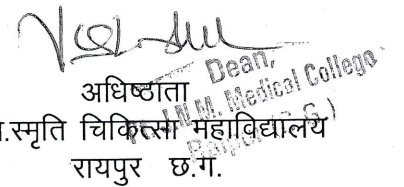 अधिष्ठाता
.स्मृति चिकित्सा महाविद्यालय
रायपुर छ.ग.
Dean,
J.N.M. Medical College